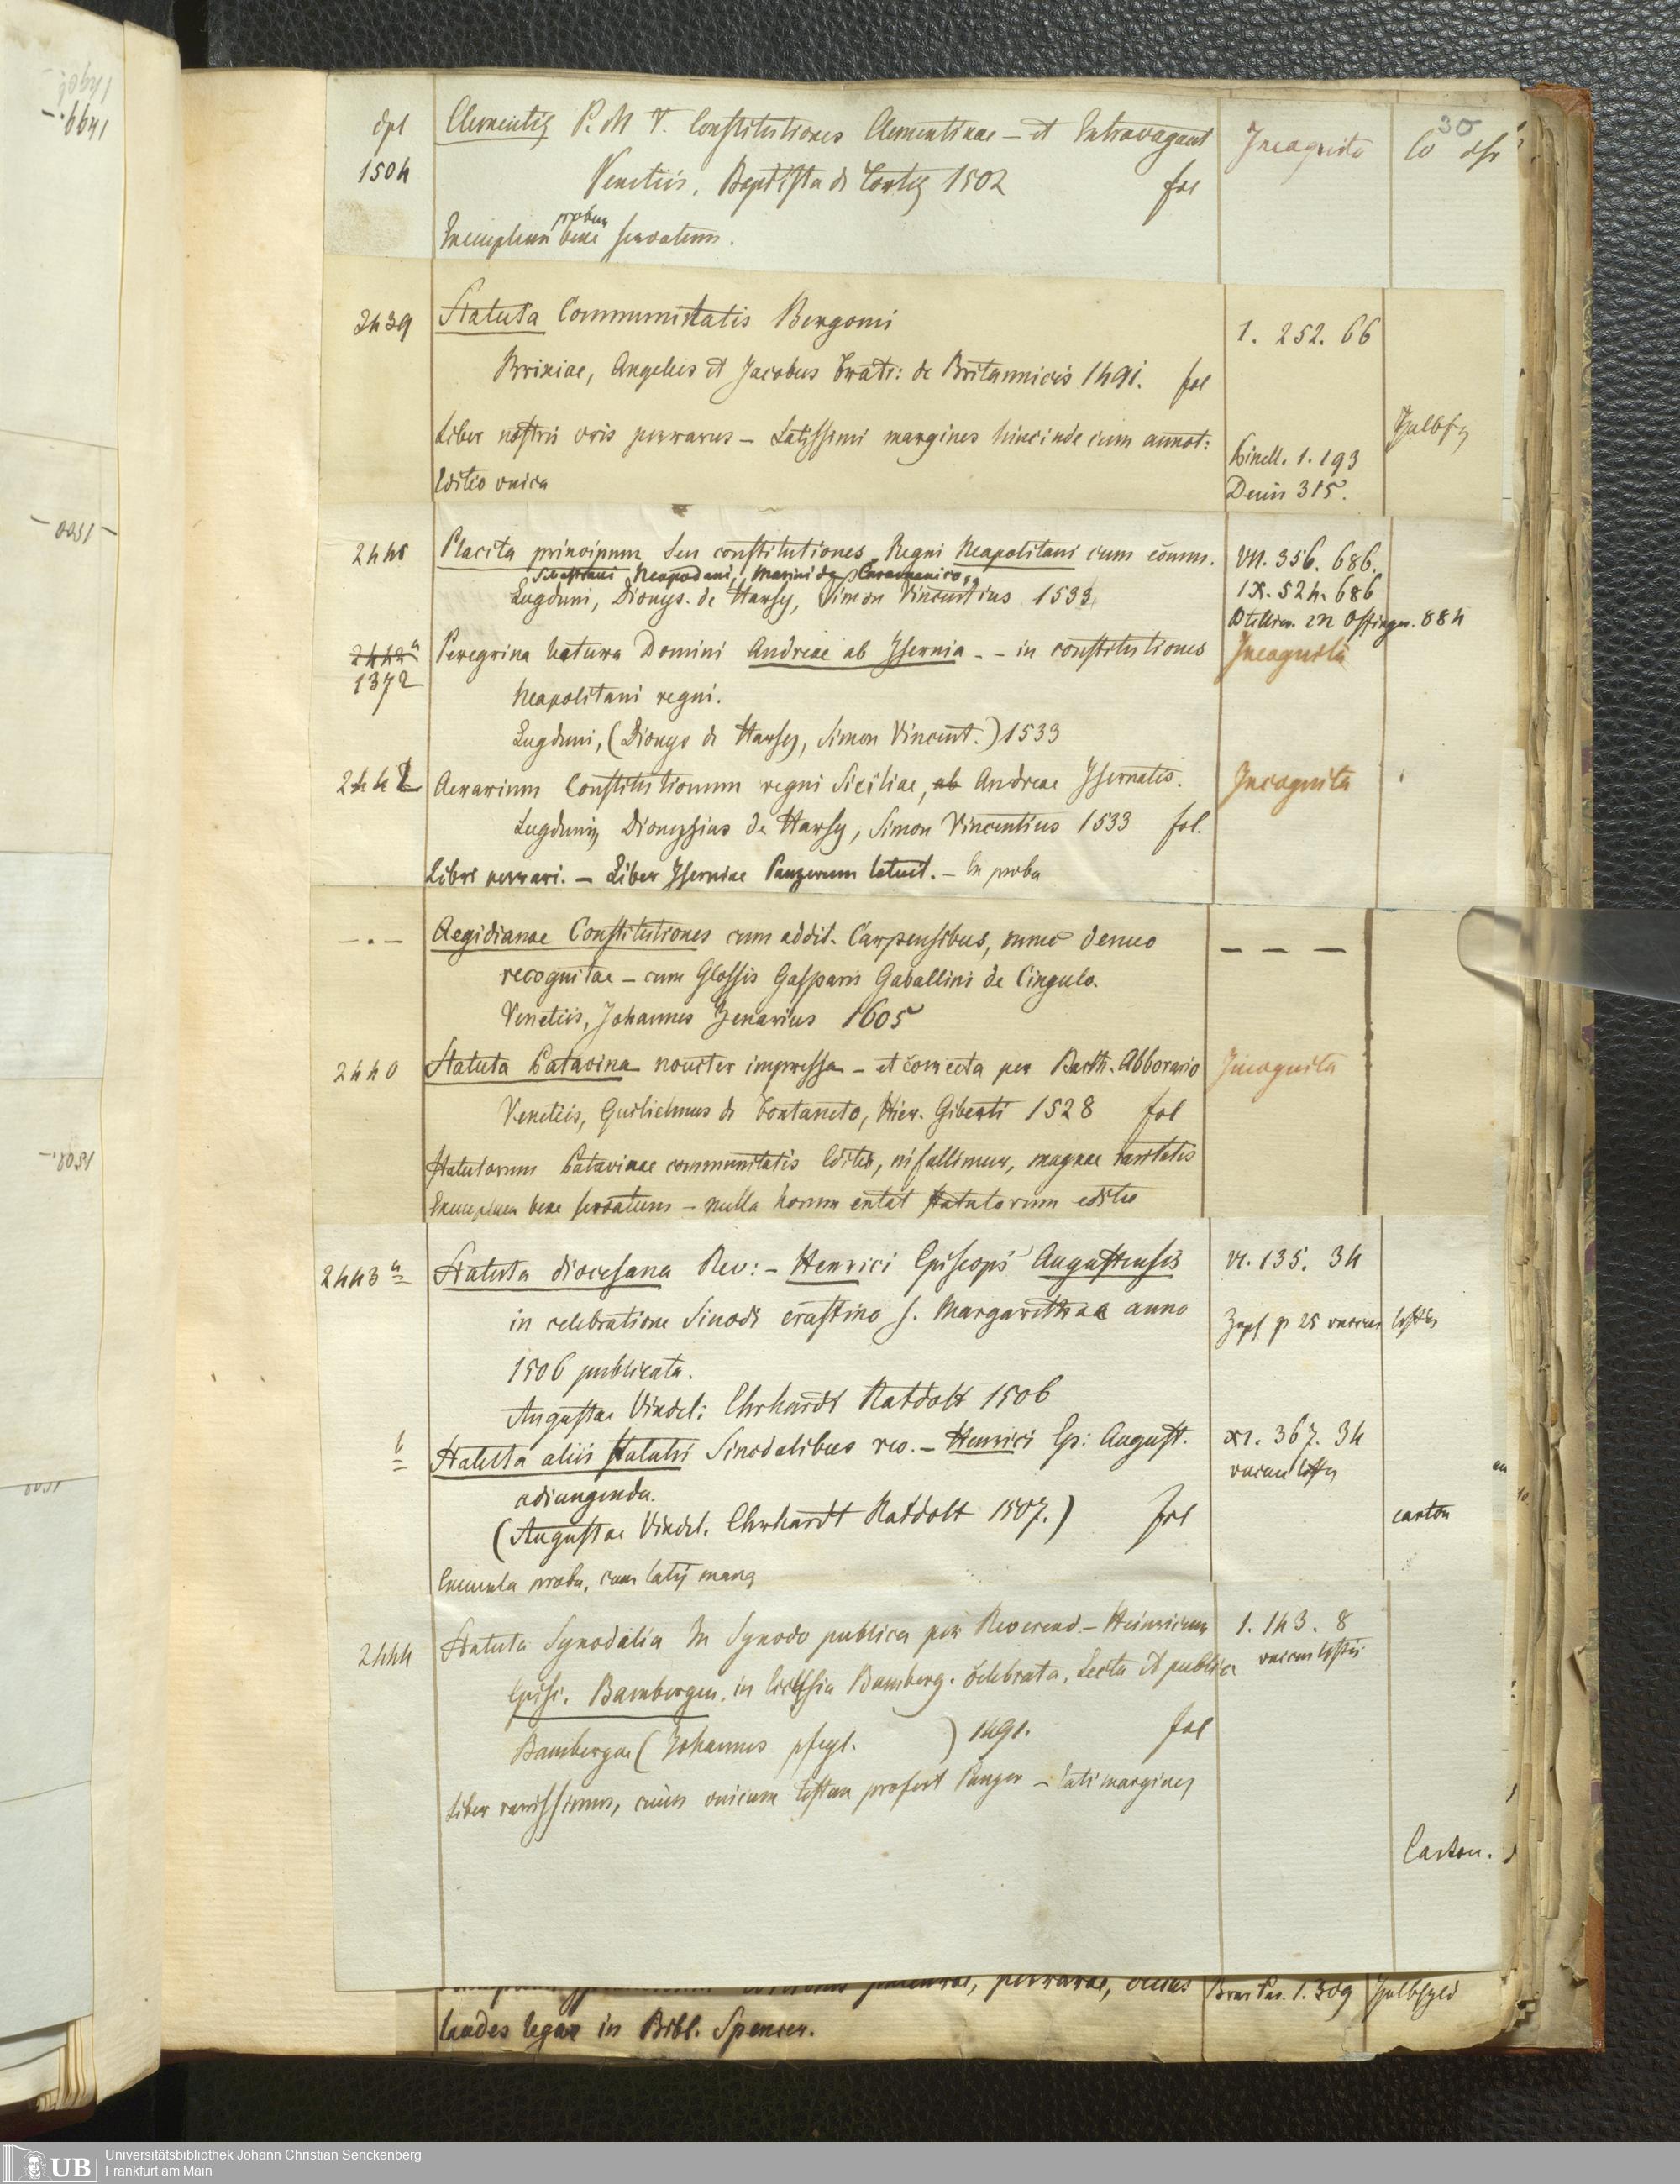 dpl
1504
Clementis P. M V. Constitutiones Clementinae - et Extravagant
Venetiis, Baptista de Tortis 1502 fol
Exemplum probum bene servatum.
Incognita
30
2439
Statuta Communitatis Bergomi
Brixiae, Angelus et Jacobus fratr: de Britannicis 1491. fol
Liber nostris oris perrarus - Latissimi margines hincinde cum annot:
Editio unica
1. 252. 66
Hinell. 1. 193
Denis 315.
Placita principum seu constitutiones Regni Neapolitani cum comm.
Sebastiani Neapodani, Marini de Caramanico,
Lugduni, Dionys. de Harsy, Simon Vincentius 1533
VII. 356. 686.
IX. 524. 686
2442 a
1372
Peregrina lectura Domini Andreae ab Isernia - - in constitutiones
Neapolitani regni.
Lugduni, (Dionys de Harsy, Simon Vincent.) 1533
Incognita
2442
Aerarium Constitutionum regni Siciliae, ab Andreae Isernatis.
Lugduni, Dionysius de Harsy, Simon Vincentius 1533 fol.
Libri perrari. - Liber Iserniae Panzerum latuit. - Ex proba
Incognita
- . -
Aegidianae Constitutiones cum addit. Carpensibus, nunc denuo
recognitae - cum Glossis Gasparis Gaballini de Cingulo.
Venetiis, Johannes Zenarius 1605
- - -
2440
Statuta Patavina noviter impressa - et correcta per Barth. Abborario
Venetiis, Guilielmus de Fontaneto, Hier. Giberti 1528 fol
Statutorum Patavinae communitatis Editio, ni fallimur, magnae raritatis
Exemplum bene servatum - nulla horum extat statutorum editio
Incognita
2443 a
Statuta diocesana Rev: - Henrici Episcopi Augustensis
in celebratione Sinodi crastino s. Margarethae anno
1506 publicata.
Augustae Vindel: Ehrhardt Ratdolt 1506
VI. 135. 34
Zapf p 25 unicus testis
b
Statuta aliis statutis Sinodalibus rev. - Henrici Ep: August.
adiungenda.
(Augustae Vindel. Ehrhardt Ratdolt 1507.) fol
Exempla proba, cum latis marg
XI. 367. 34
unicus testis
carton
2444
Statuta Synodalia In Synodo publica per Reverend - Heinricum
Episc. Bambergen. in Ecclesia Bamberg. celebrata, Lecta et publica
Bambergae (Johannes pfeyl. ) 1491. fol
Liber rarissimus, cuius unicum testem profert Panzer - lati margines
1. 143. 8
unicus testis
Carton.
perrarae, cuius
laudes lege in Bibl. Spencer.
1. 309
1499.-
1500
1502.-
1500
Universitätsbibliothek Johann Christian Senckenberg
Frankfurt am Main
UB